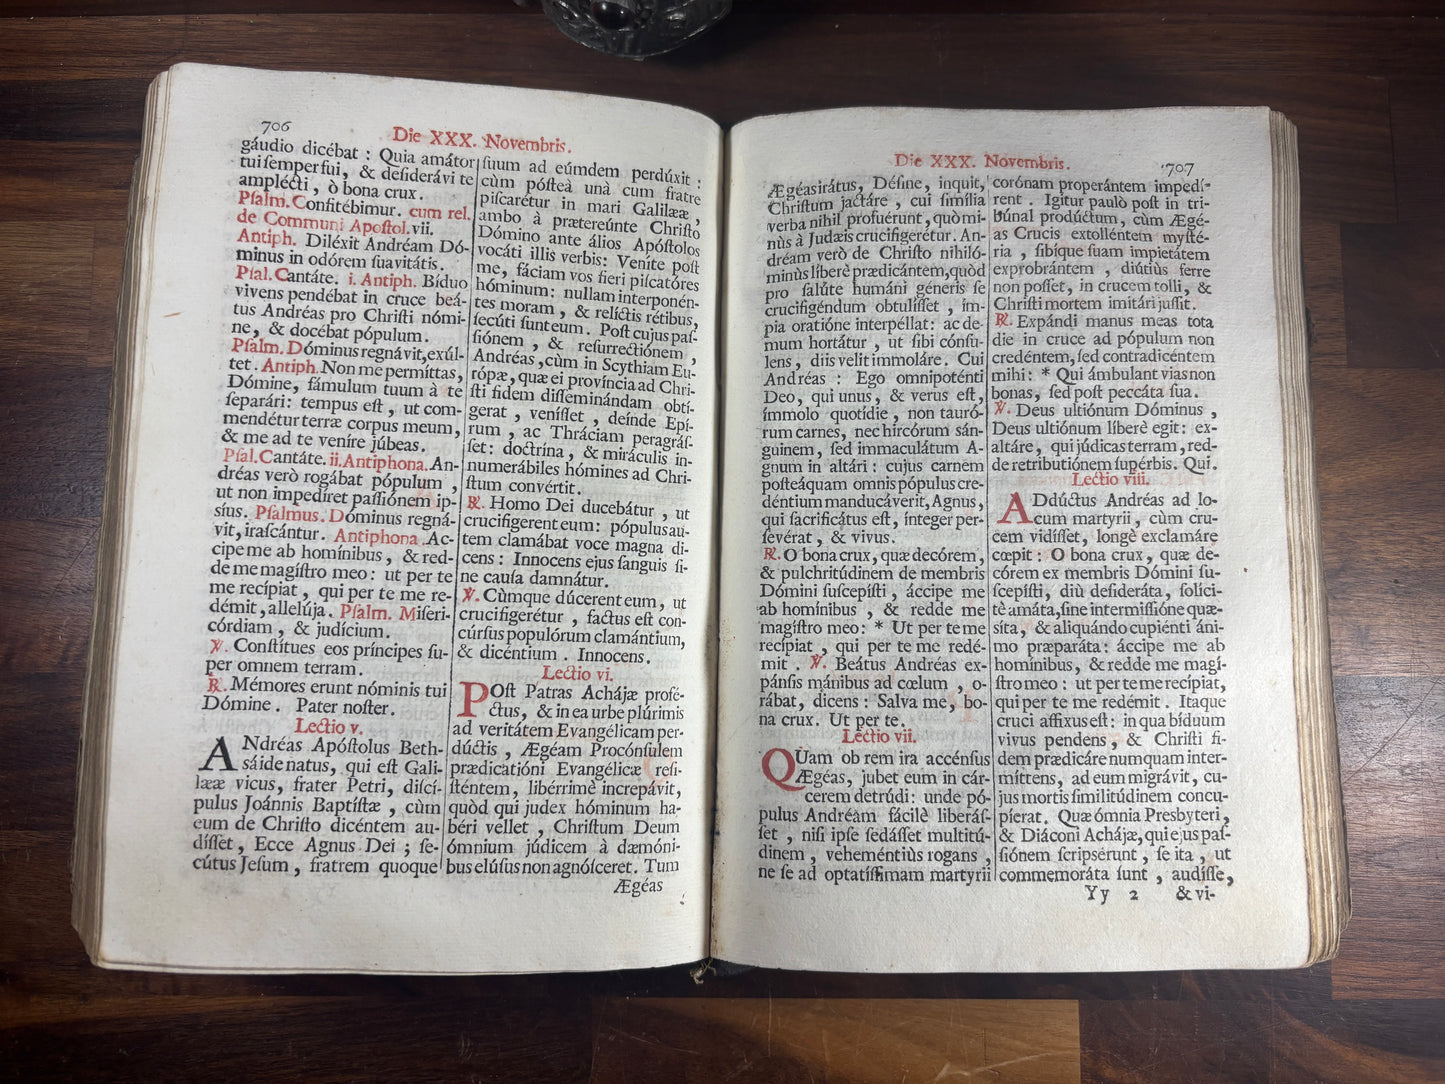 706
Die XXX. Novembris.
gáudio dicébat : Quia amátor
tui ſemper fui, & deſiderávi te
ampléćti, ò bona crux.
Pſalm. Confitébimur. cum rel.
de Communi Apoſtol. vii.
Antiph. Diléxit Andréam Dó-
minus in odórem ſuavitátis.
Pſal. Cantáte. i. Antiph. Bíduo
vivens pendébat in cruce beá-
tus Andréas pro Chriſti nómi-
ne, & docébat pópulum.
Pſalm. Dóminus regnávit, exúl-
tet. Antiph. Non me permíttas,
Dómine, fámulum tuum à te
ſeparári: tempus eſt, ut com-
mendétur terræ corpus meum,
& me ad te veníre júbeas.
Pſal. Cantáte. ii. Antiphona. An-
dréas verò rogábat pópulum ,
ut non impedíret paſſiónem ip-
síus. Pſalmus. Dóminus regná-
vit, iraſcántur. Antiphona. Ac-
cipe me ab homínibus, & red-
de me magíſtro meo: ut per te
me recípiat , qui per te me re-
démit, allelúja. Pſalm. Miſeri-
córdiam , & judícium.
℣. Conſtítues eos príncipes ſu-
per omnem terram.
℟. Mémores erunt nóminis tui
Dómine. Pater noſter.
Lećtio v.
ANdréas Apóſtolus Beth-
sáide natus, qui eſt Gali-
lææ vicus, frater Petri, diſcí-
pulus Joánnis Baptíſtæ , cùm
eum de Chriſto dicéntem au-
díſſet, Ecce Agnus Dei ; ſe-
cútus Jeſum , fratrem quoque
ſuum ad eúmdem perdúxit :
cùm póſteà unà cum fratre
piſcarétur in mari Galilææ ,
ambo à prætereúnte Chriſto
Dómino ante álios Apóſtolos
vocáti illis verbis: Veníte poſt
me, fáciam vos fíeri piſcatóres
hóminum: nullam interponén-
tes moram , & relíćtis rétibus,
ſecúti ſunt eum. Poſt cujus paſ-
ſiónem , & reſurrećtiónem ,
Andréas, cùm in Scythiam Eu-
rópæ, quæ ei província ad Chri-
ſti fidem diſſeminándam obtí-
gerat , veníſſet , deínde Epí-
rum , ac Thráciam peragráſ-
ſet: doctrína , & miráculis in-
numerábiles hómines ad Chri-
ſtum convértit.
℟. Homo Dei ducebátur , ut
crucifígerent eum: pópulus au-
tem clamábat voce magna di-
cens : Innocens ejus ſanguis ſi-
ne cauſa damnátur.
℣. Cùmque dúcerent eum, ut
crucifigerétur , faćtus eſt con-
cúrſus populórum clamántium,
& dicéntium . Innocens.
Lećtio vi.
POſt Patras Achájæ proſé-
ćtus, & in ea urbe plúrimis
ad veritátem Evangélicam per-
dúćtis , Ægéam Procónſulem
prædicatióni Evangélicæ reſi-
ſténtem, libérrimè increpávit,
quòd qui judex hóminum ha-
béri vellet , Chriſtum Deum
ómnium júdicem à dæmóni-
bus elúſus non agnóſceret. Tum
Ægéas
Die XXX. Novembris.
707
Ægéas irátus, Déſine, inquit,
Chriſtum jaćtáre , cui ſimília
verba nihil profuérunt, quò mi-
nùs à Judæis crucifigerétur. An-
dréam verò de Chriſto nihiló-
minùs líberè prædicántem, quòd
pro ſalúte humáni géneris ſe
crucifigéndum obtulíſſet , ím-
pia oratióne intérpellat: ac de-
mum hortátur , ut ſibi cónſu-
lens , diis velit immoláre. Cui
Andréas : Ego omnipoténti
Deo, qui unus, & verus eſt,
ímmolo quotídie , non tauró-
rum carnes, nec hircórum sán-
guinem, ſed immaculátum A-
gnum in altári: cujus carnem
poſteáquam omnis pópulus cre-
déntium manducáverit, Agnus,
qui ſacrificátus eſt, ínteger per-
ſevérat , & vivus.
℟. O bona crux, quæ decórem,
& pulchritúdinem de membris
Dómini ſuſcepíſti, áccipe me
ab homínibus , & redde me
magíſtro meo: * Ut per te me
recípiat , qui per te me redé-
mit . ℣. Beátus Andréas ex-
pánſis mánibus ad cœlum , o-
rábat, dicens : Salva me, bo-
na crux. Ut per te.
Lećtio vii.
QUam ob rem ira accénſus
Ægéas, jubet eum in cár-
cerem detrúdi: unde pó-
pulus Andréam fácilè liberáſ-
ſet , niſi ipſe ſedáſſet multitú-
dinem , veheméntiùs rogans ,
ne ſe ad optatíſſimam martyrii
corónam properántem impedí-
rent . Igitur paulò poſt in tri-
búnal prodúćtum, cùm Ægé-
as Crucis extolléntem myſté-
ria , ſibíque ſuam impietátem
exprobrántem , diútiùs ferre
non poſſet, in crucem tolli, &
Chriſti mortem imitári juſſit.
℟. Expándi manus meas tota
die in cruce ad pópulum non
credéntem, ſed contradicéntem
mihi: * Qui ámbulant vias non
bonas, ſed poſt peccáta ſua.
℣. Deus ultiónum Dóminus ,
Deus ultiónum líberè egit: ex-
altáre, qui júdicas terram, red-
de retributiónem ſupérbis. Qui.
Lećtio viii.
ADdúćtus Andréas ad lo-
cum martyrii, cùm cru-
cem vidíſſet, longè exclamáre
cœpit : O bona crux, quæ de-
córem ex membris Dómini ſu-
ſcepíſti, diù deſideráta, ſolíci-
tè amáta, ſine intermiſſióne quæ-
síta, & aliquándo cupiénti áni-
mo præparáta: áccipe me ab
homínibus, & redde me magí-
ſtro meo: ut per te me recípiat,
qui per te me redémit. Itaque
cruci affíxus eſt: in qua bíduum
vivus pendens , & Chriſti fi-
dem prædicáre numquam inter-
míttens, ad eum migrávit, cu-
jus mortis ſimilitúdinem concu-
píerat. Quæ ómnia Presbyteri,
& Diáconi Achájæ, qui ejus paſ-
ſiónem ſcripsérunt, ſe ita , ut
commemoráta ſunt , audíſſe,
Yy 2 & vi-